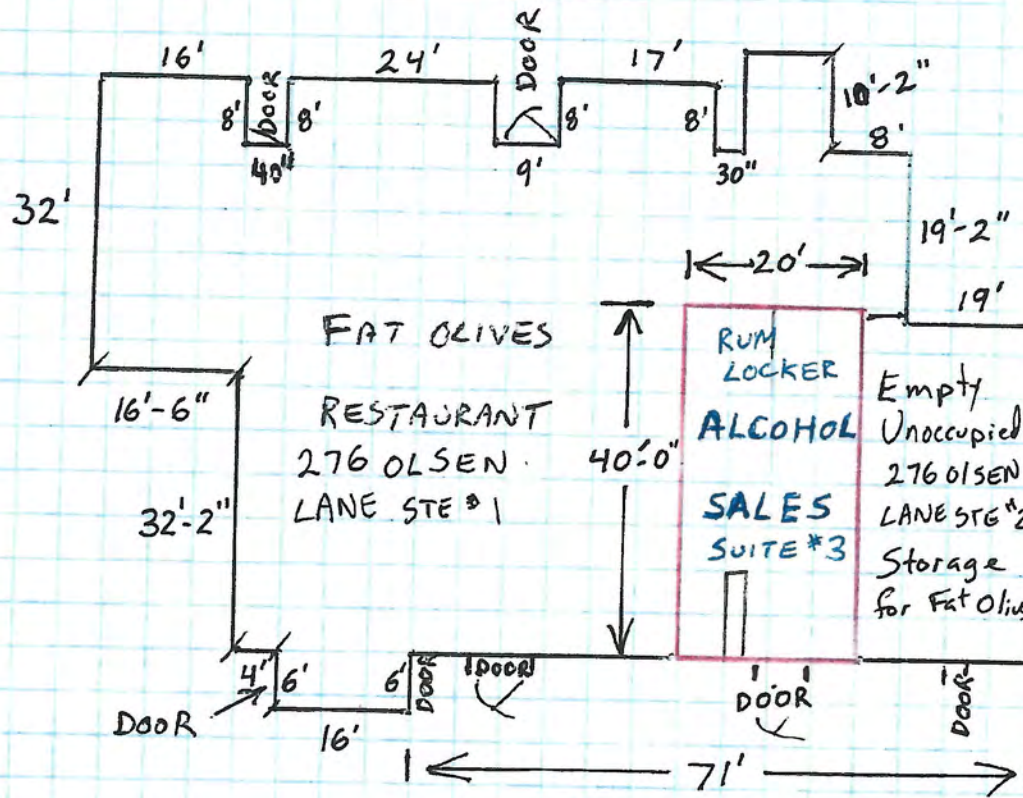 16'
DOOR
24'
DOOR
17'
10'-2"
8'
8'
8'
8'
8'
40"
9'
30"
32'
19'-2"
20'
19'
FAT OLIVES
RESTAURANT
276 OLSEN.
LANE STE #1
40'-0"
RUM
LOCKER
ALCOHOL
SALES
SUITE #3
Empty
Unoccupied
276 OlSEN
LANE STE #2
Storage
for Fat Oliv
16'-6"
32'-2"
4'
6'
6'
DOOR
DOOR
DOOR
16'
DOOR
DOOR
71'